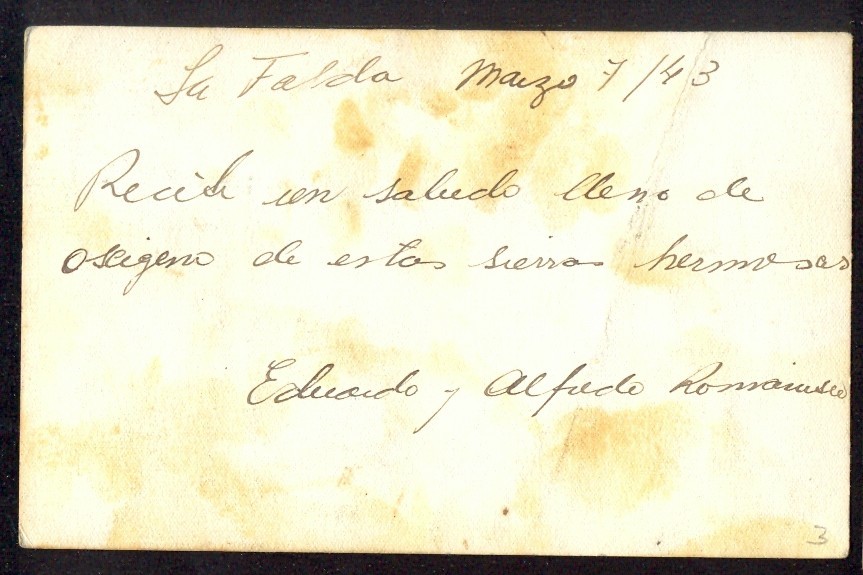 La Falda Marzo 7/43
Recibe un saludo lleno de
oxigeno de estas sierras hermosas
Eduardo y Alfredo
3